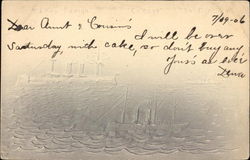 7/29-06
Dear Aunt & Cousins
I will be over
Saturday, with cake, so don't buy any,
Yours as ever
Lena